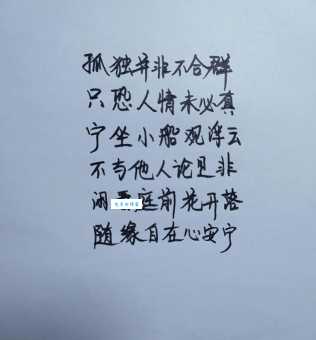 孤独并非不合群
只恐人情未必真
宁坐小船观浮云
不与他人论是非
闲看庭前花开落
随缘自在心安宁